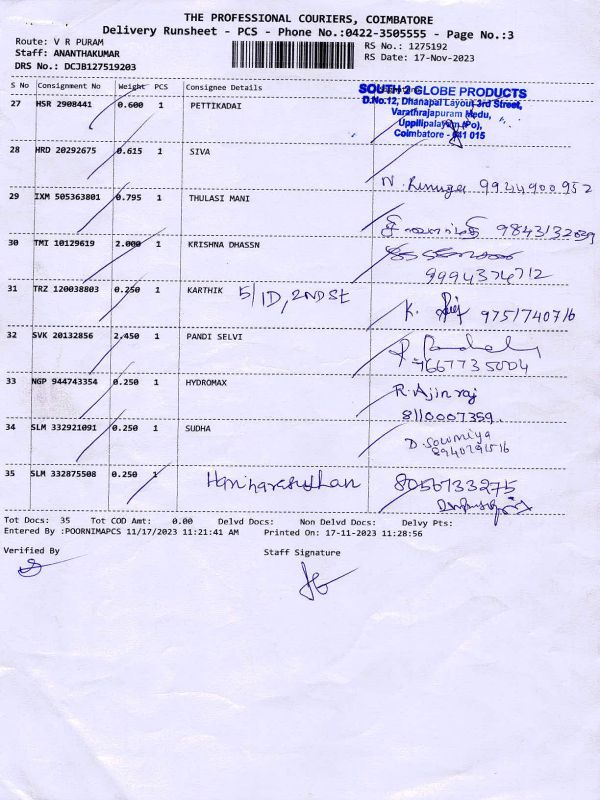 THE PROFESSIONAL COURIERS, COIMBATORE
Delivery Runsheet - PCS - Phone No.:0422-3505555 - Page No.:3
Route: V R PURAM
Staff: ANANTHAKUMAR
DRS No.: DCJB127519203
RS No.: 1275192
RS Date: 17-Nov-2023
S No Consignment No Weight PCS Consignee Details
27 HSR 2908441 0.600 1 PETTIKADAI
SOUTH 2 GLOBE PRODUCTS
D.No.12, Dhanapal Layout 3rd Street,
Varathrajapuram Medu,
Uppilipalayam (Po),
Coimbatore - 641 015
28 HRD 20292675 0.615 1 SIVA
N. Renuga 9944900952
29 IXM 505363801 0.795 1 THULASI MANI
9843132039
30 TMI 10129619 2.000 1 KRISHNA DHASSN
9994374712
31 TRZ 120038803 0.250 1 KARTHIK 5/1D, 2ND St
K. 9751740716
32 SVK 20132856 2.450 1 PANDI SELVI
9667735004
33 NGP 944743354 0.250 1 HYDROMAX
R. Ajin raj
8110007359
34 SLM 332921091 0.250 1 SUDHA
D. Sowmiya
8940791516
35 SLM 332875508 0.250 1 Hariharasuthan 8056133275
Tot Docs: 35 Tot COD Amt: 0.00 Delvd Docs: Non Delvd Docs: Delvy Pts:
Entered By :POORNIMAPCS 11/17/2023 11:21:41 AM Printed On: 17-11-2023 11:28:56
Verified By
Staff Signature